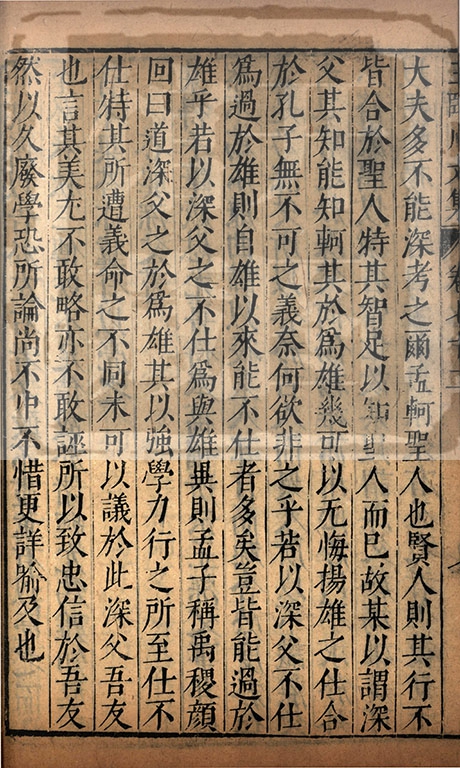 王臨川文集 卷七十二
大夫多不能深考之爾孟軻聖人也賢人則其行不
皆合於聖人特其智足以知聖人而巳故某以謂深
父其知能知軻其於爲雄幾可以无悔揚雄之仕合
於孔子無不可之義奈何欲非之乎若以深父不仕
爲過於雄則自雄以來能不仕者多矣豈皆能過於
雄乎若以深父之不仕爲與雄異則孟子稱禹稷顏
回曰道深父之於爲雄其以強學力行之所至仕不
仕特其所遭義命之不同未可以議於此深父吾友
也言其美尤不敢略亦不敢誣所以致忠信於吾友
然以久廢學恐所論尚不中不惜更詳喻及也